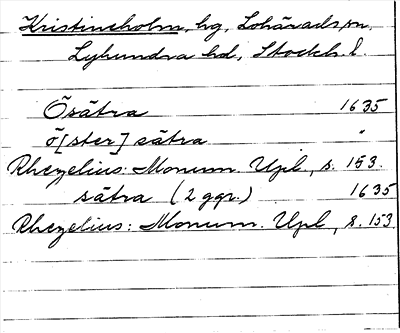 Kristineholm, hg, Lohärads sn,
Lyhundra hd, Stockh. l.
Ösätra 1635
ö[ster] sätra "
Rhezelius: Monum. Upl, s. 153.
sätra (2 ggr.) 1635
Rhezelius: Monum. Upl, s. 153.